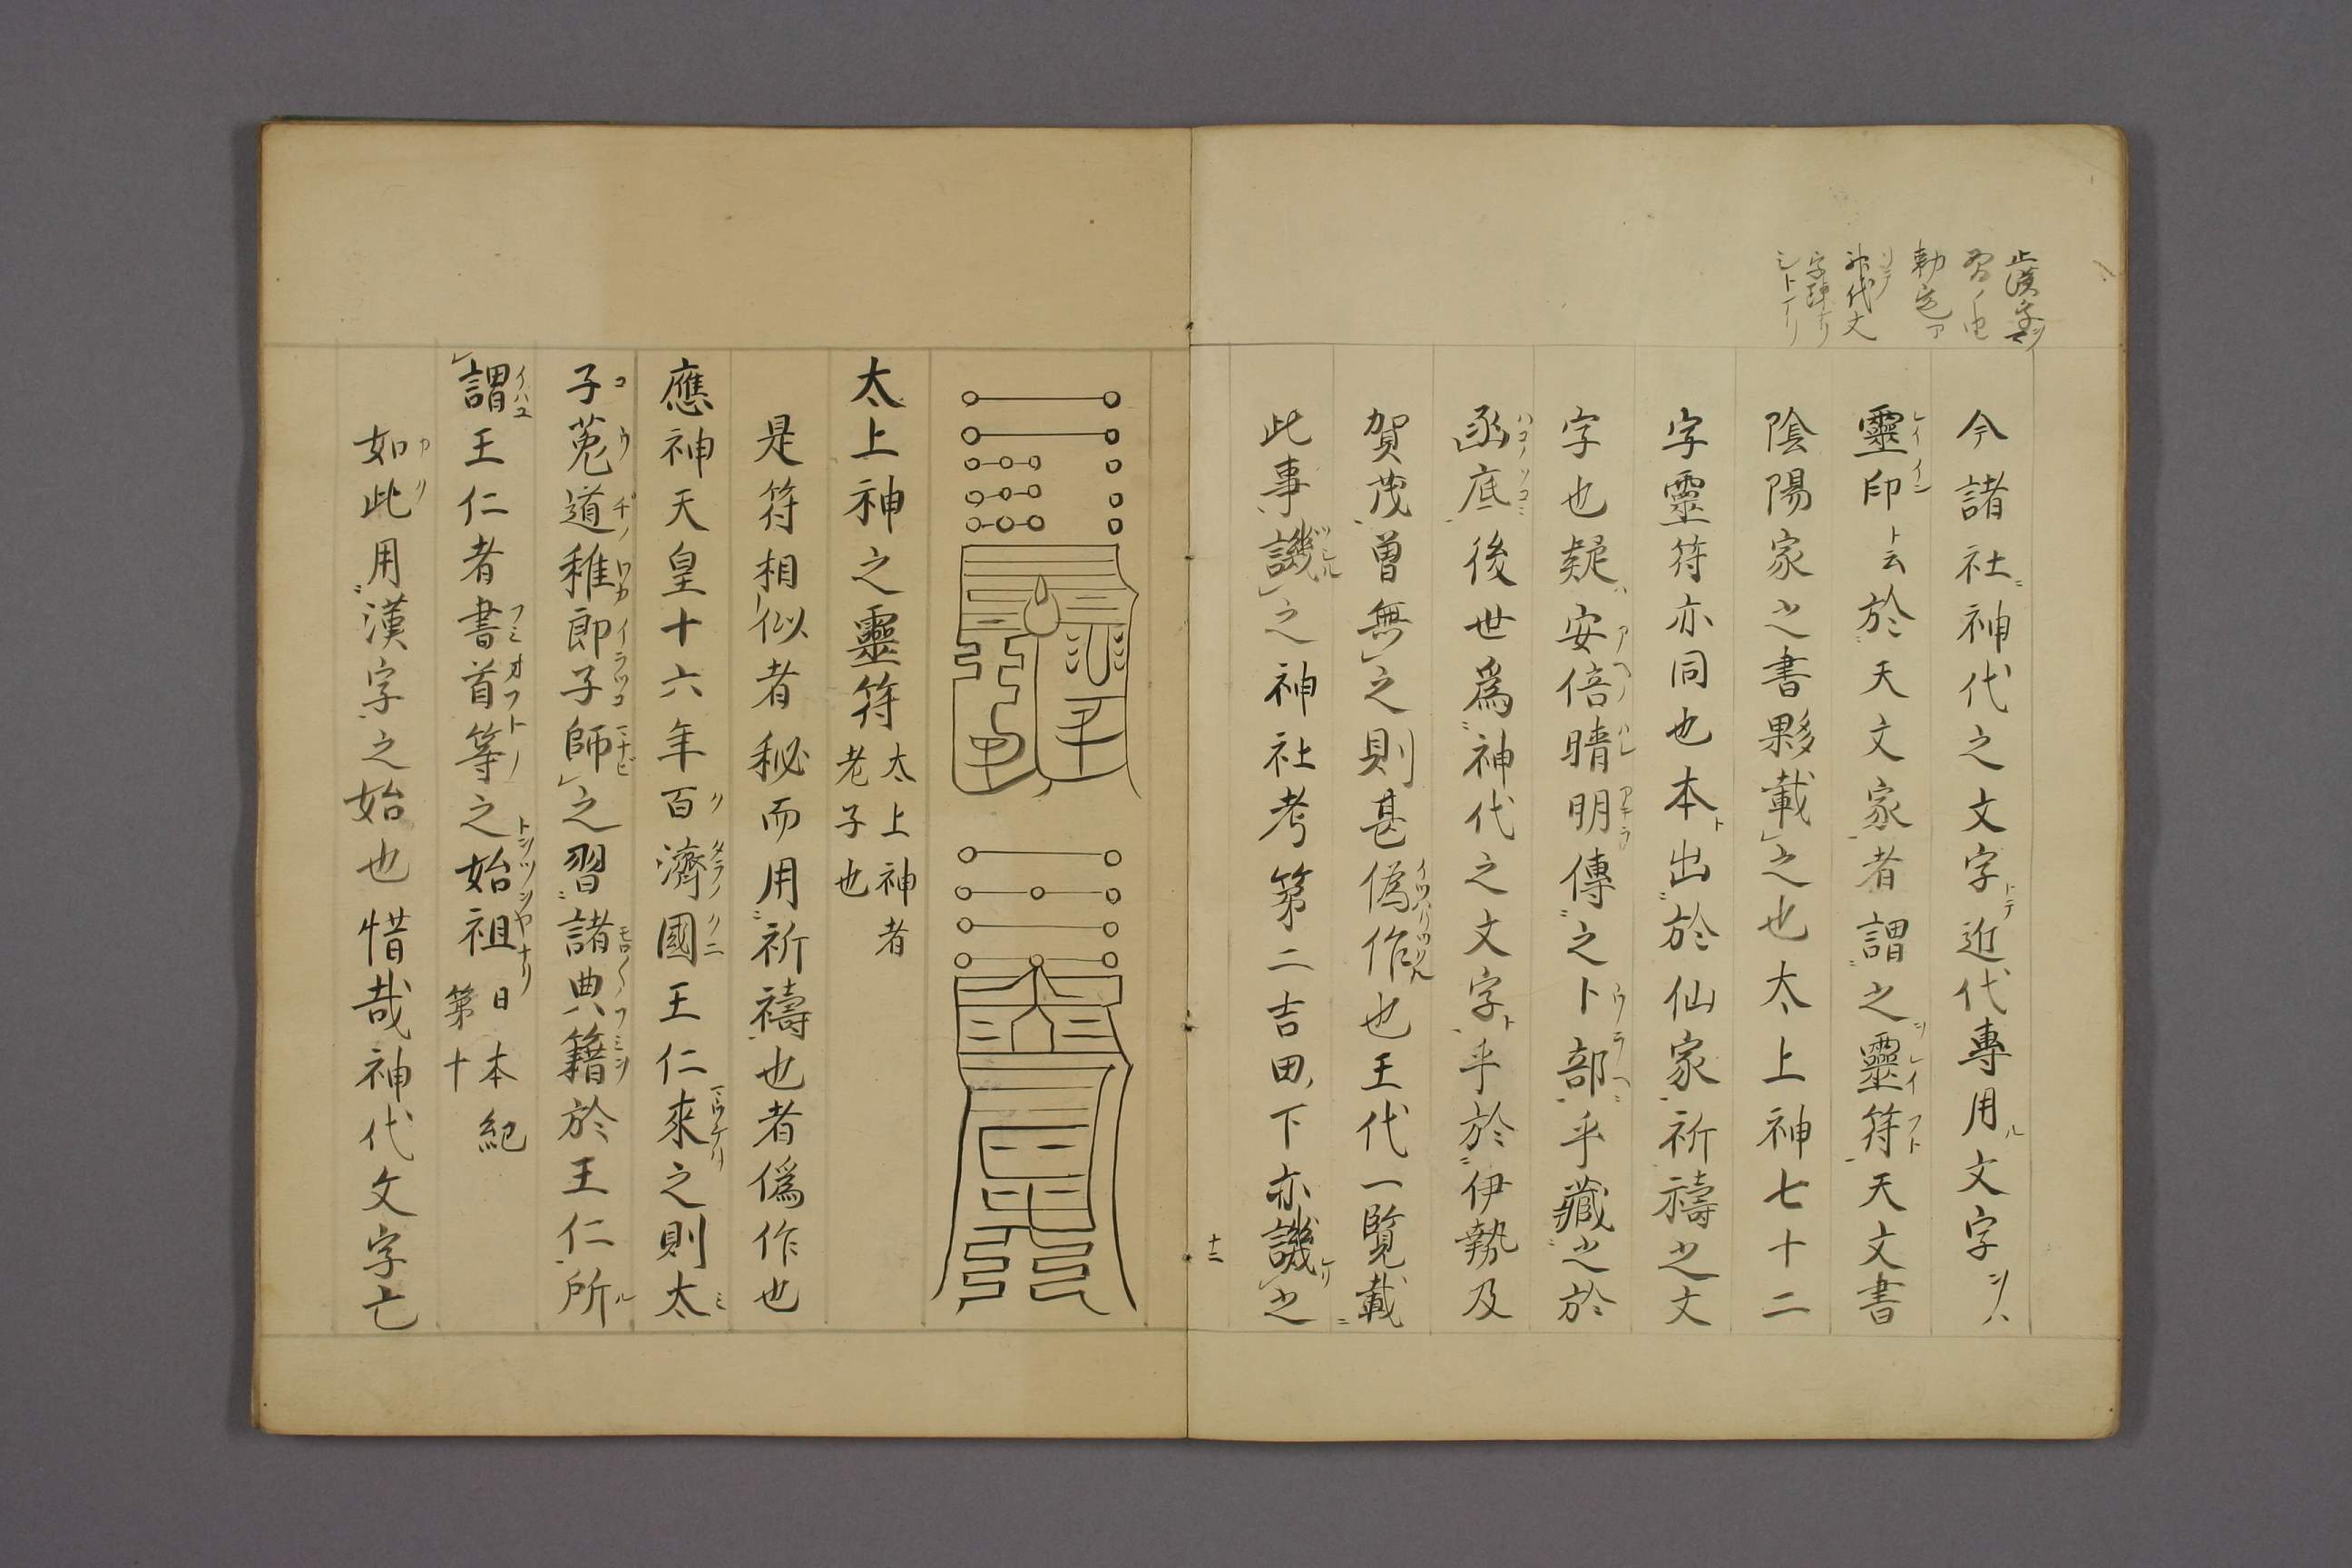 今諸社神代之文字近代專用文字
靈印ト云於天文家者謂之靈符天文書
陰陽家之書夥載之也太上神七十二
字靈符亦同也本出於仙家祈禱之文
字也疑安倍晴明傳之卜部乎藏之於
函底後世爲神代之文字乎於伊勢及
賀茂曽無之則甚偽作也王代一覧載
此事譏之神社考第二吉田下亦譏之
十二
太上神之靈符
太上神者
老子也
是符相似者秘而用祈禱也者僞作也
應神天皇十六年百濟國王仁來之則太
子菟道稚郎子師之習諸典籍於王仁所
謂王仁者書首等之始祖
日本紀
第十
如此用漢字之始也惜哉神代文字亡